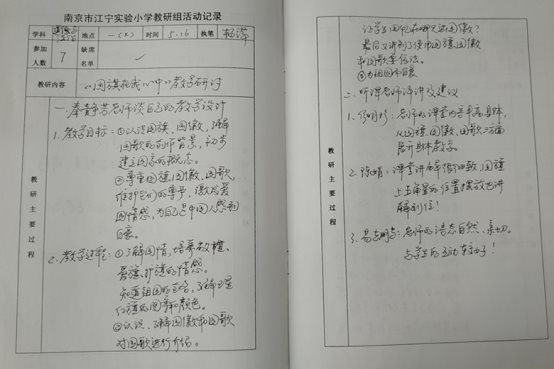 南京市江宁实验小学教研组活动记录
学科 道德与法治 地点 一(X) 时间 5.16 执笔 杨萍
参加人数 7 缺席名单
教研内容 《国旗在我心中》教学研讨
教研主要过程
一、秦静芸老师谈自己的教学设计
1. 教学目标：①认识国旗、国徽，了解
国歌的创作背景，初步
建立国家的概念。
②尊重国旗、国徽、国歌，
维护它们的尊号，激发爱
国情感，为自己是中国人感到
自豪。
2. 教学过程：①了解国情，培养敬旗、
爱旗、护旗的情感。
知道祖国的名称，了解五星
红旗的图案和颜色。
②认识、了解国徽和国歌
对国歌进行介绍。
教研主要过程
让学生回忆在哪见过国徽？
最后又讲到了使用国旗国徽
和国歌等合法。
③为祖国而自豪
二、听课老师评讲及建议
1. 老师的课堂内容丰富具体，
从国旗、国徽、国歌三方面
展开具体教学
2. 陈娟：课堂讲解得很细致，国旗
上五角星的位置摆放也讲
解到位！
3. 老师的语态自然、亲切。
与学生的互动